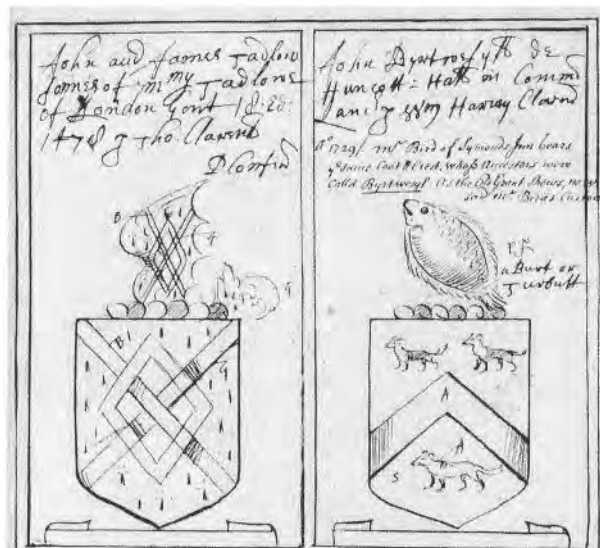 John and James Tadlow
sonnes of Tadlowe
of London Gent 18: Ed:
1478 p Tho. Clarent
John Byrtwesyll de
Huncott = Hall in Comm
Lanc p Wm Harvey Claren
Ao 1729/ Mr Bird of Symonds Inn bears
ye same Coat & Crest, whose Ancestors were
Called Byrtwesyl As the Old Grant Shews, now
said Mr Birds Custo
B
G
G
a Burt or
Turbutt
B
G
A
A
S